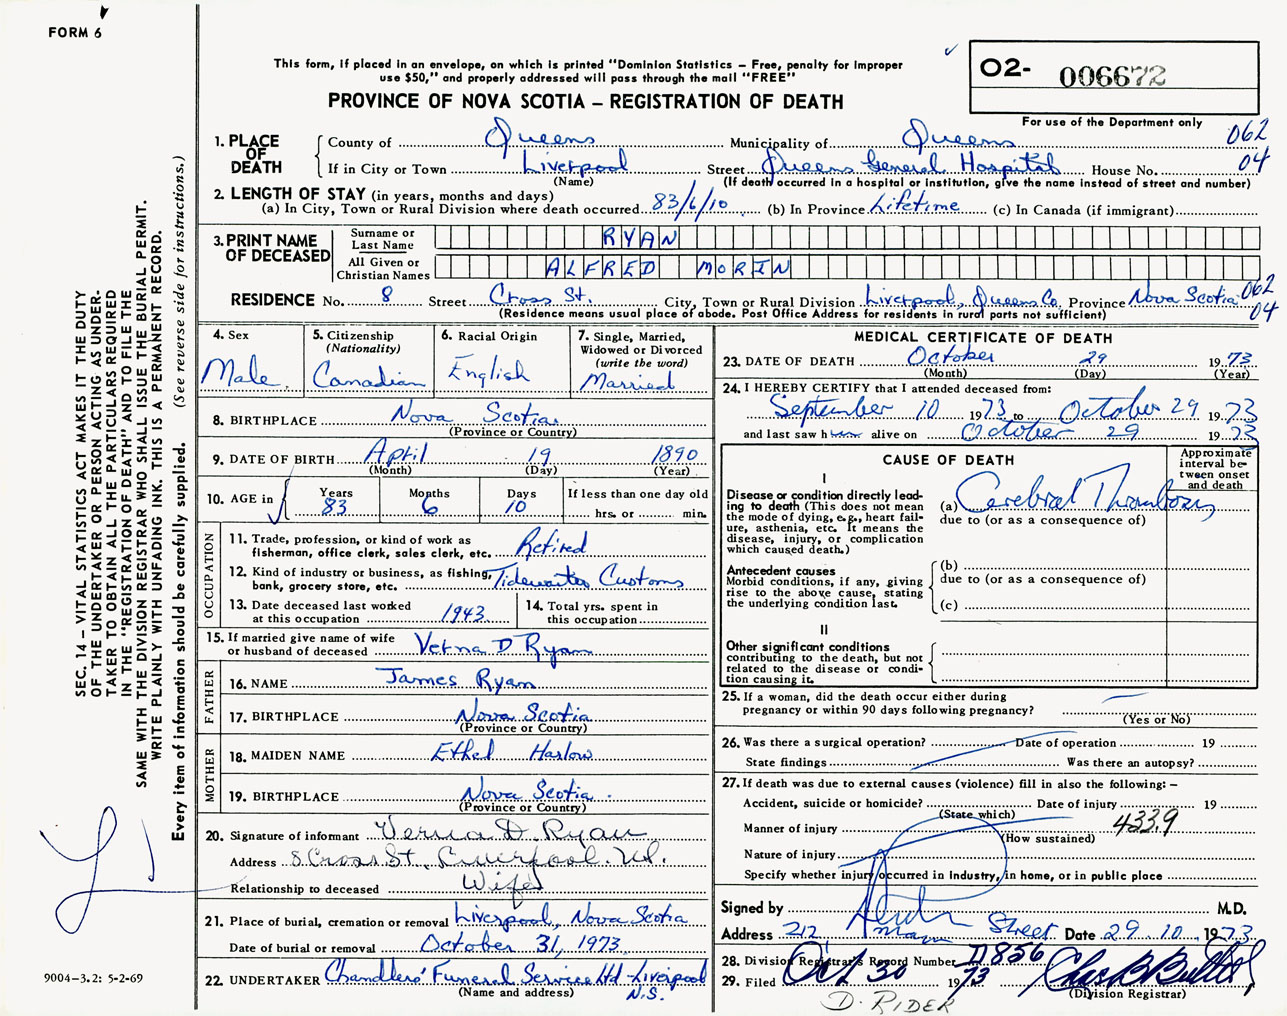 FORM 6
This form, if placed in an envelope, on which is printed "Dominion Statistics – Free, penalty for improper
use $50," and properly addressed will pass through the mail "FREE"
PROVINCE OF NOVA SCOTIA – REGISTRATION OF DEATH
O2- 006672
For use of the Department only
062
04
1. PLACE OF DEATH
County of Queens Municipality of Queens
If in City or Town Liverpool Street Queens General Hospital House No.
(Name) (If death occurred in a hospital or institution, give the name instead of street and number)
2. LENGTH OF STAY (in years, months and days)
(a) In City, Town or Rural Division where death occurred 83/6/10 (b) In Province Lifetime (c) In Canada (if immigrant)
3. PRINT NAME OF DECEASED
Surname or Last Name RYAN
All Given or Christian Names ALFRED MORIN
RESIDENCE No. 8 Street Cross St. City, Town or Rural Division Liverpool, Queens Co. Province Nova Scotia 062
04
(Residence means usual place of abode. Post Office Address for residents in rural parts not sufficient)
4. Sex
Male
5. Citizenship
(Nationality)
Canadian
6. Racial Origin
English
7. Single, Married,
Widowed or Divorced
(write the word)
Married
8. BIRTHPLACE Nova Scotia
(Province or Country)
9. DATE OF BIRTH April 19 1890
(Month) (Day) (Year)
10. AGE in
Years 83
Months 6
Days 10
If less than one day old
hrs. or min.
OCCUPATION
11. Trade, profession, or kind of work as
fisherman, office clerk, sales clerk, etc. Retired
12. Kind of industry or business, as fishing,
bank, grocery store, etc. Tidewaiter Customs
13. Date deceased last worked
at this occupation 1943
14. Total yrs. spent in
this occupation
15. If married give name of wife
or husband of deceased Verna D Ryan
FATHER
16. NAME James Ryan
17. BIRTHPLACE Nova Scotia
(Province or Country)
MOTHER
18. MAIDEN NAME Ethel Harlow
19. BIRTHPLACE Nova Scotia
(Province or Country)
20. Signature of informant Verna D. Ryan
Address 8 Cross St., Liverpool. N.S.
Relationship to deceased Wife
21. Place of burial, cremation or removal Liverpool, Nova Scotia
Date of burial or removal October 31, 1973
22. UNDERTAKER Chandlers' Funeral Service Ltd - Liverpool
N.S.
(Name and address)
MEDICAL CERTIFICATE OF DEATH
23. DATE OF DEATH October 29 1973
(Month) (Day) (Year)
24. I HEREBY CERTIFY that I attended deceased from:
September 10 1973 to October 29 1973
and last saw h alive on October 29 1973
CAUSE OF DEATH
Approximate
interval be-
tween onset
and death
I
Disease or condition directly lead-
ing to death (This does not mean
the mode of dying, e.g., heart fail-
ure, asthenia, etc. It means the
disease, injury, or complication
which caused death.)
(a) Cerebral Thrombosis
due to (or as a consequence of)
Antecedent causes
Morbid conditions, if any, giving
rise to the above cause, stating
the underlying condition last.
(b)
due to (or as a consequence of)
(c)
II
Other significant conditions
contributing to the death, but not
related to the disease or condi-
tion causing it.
25. If a woman, did the death occur either during
pregnancy or within 90 days following pregnancy?
(Yes or No)
26. Was there a surgical operation? Date of operation 19
State findings Was there an autopsy?
27. If death was due to external causes (violence) fill in also the following: –
Accident, suicide or homicide? Date of injury 19
(State which)
Manner of injury 433.9
(How sustained)
Nature of injury
Specify whether injury occurred in industry, in home, or in public place
Signed by M.D.
Address 212 Main Street Date 29.10.1973
28. Division Registrar's Record Number D856
29. Filed Oct 30 1973
(Division Registrar)
D. RIDER
SEC. 14 – VITAL STATISTICS ACT MAKES IT THE DUTY
OF THE UNDERTAKER OR PERSON ACTING AS UNDER-
TAKER TO OBTAIN ALL THE PARTICULARS REQUIRED
IN THE "REGISTRATION OF DEATH" AND TO FILE THE
SAME WITH THE DIVISION REGISTRAR WHO SHALL ISSUE THE BURIAL PERMIT.
WRITE PLAINLY WITH UNFADING INK. THIS IS A PERMANENT RECORD.
Every item of information should be carefully supplied. (See reverse side for instructions.)
9004-3.2: 5-2-69